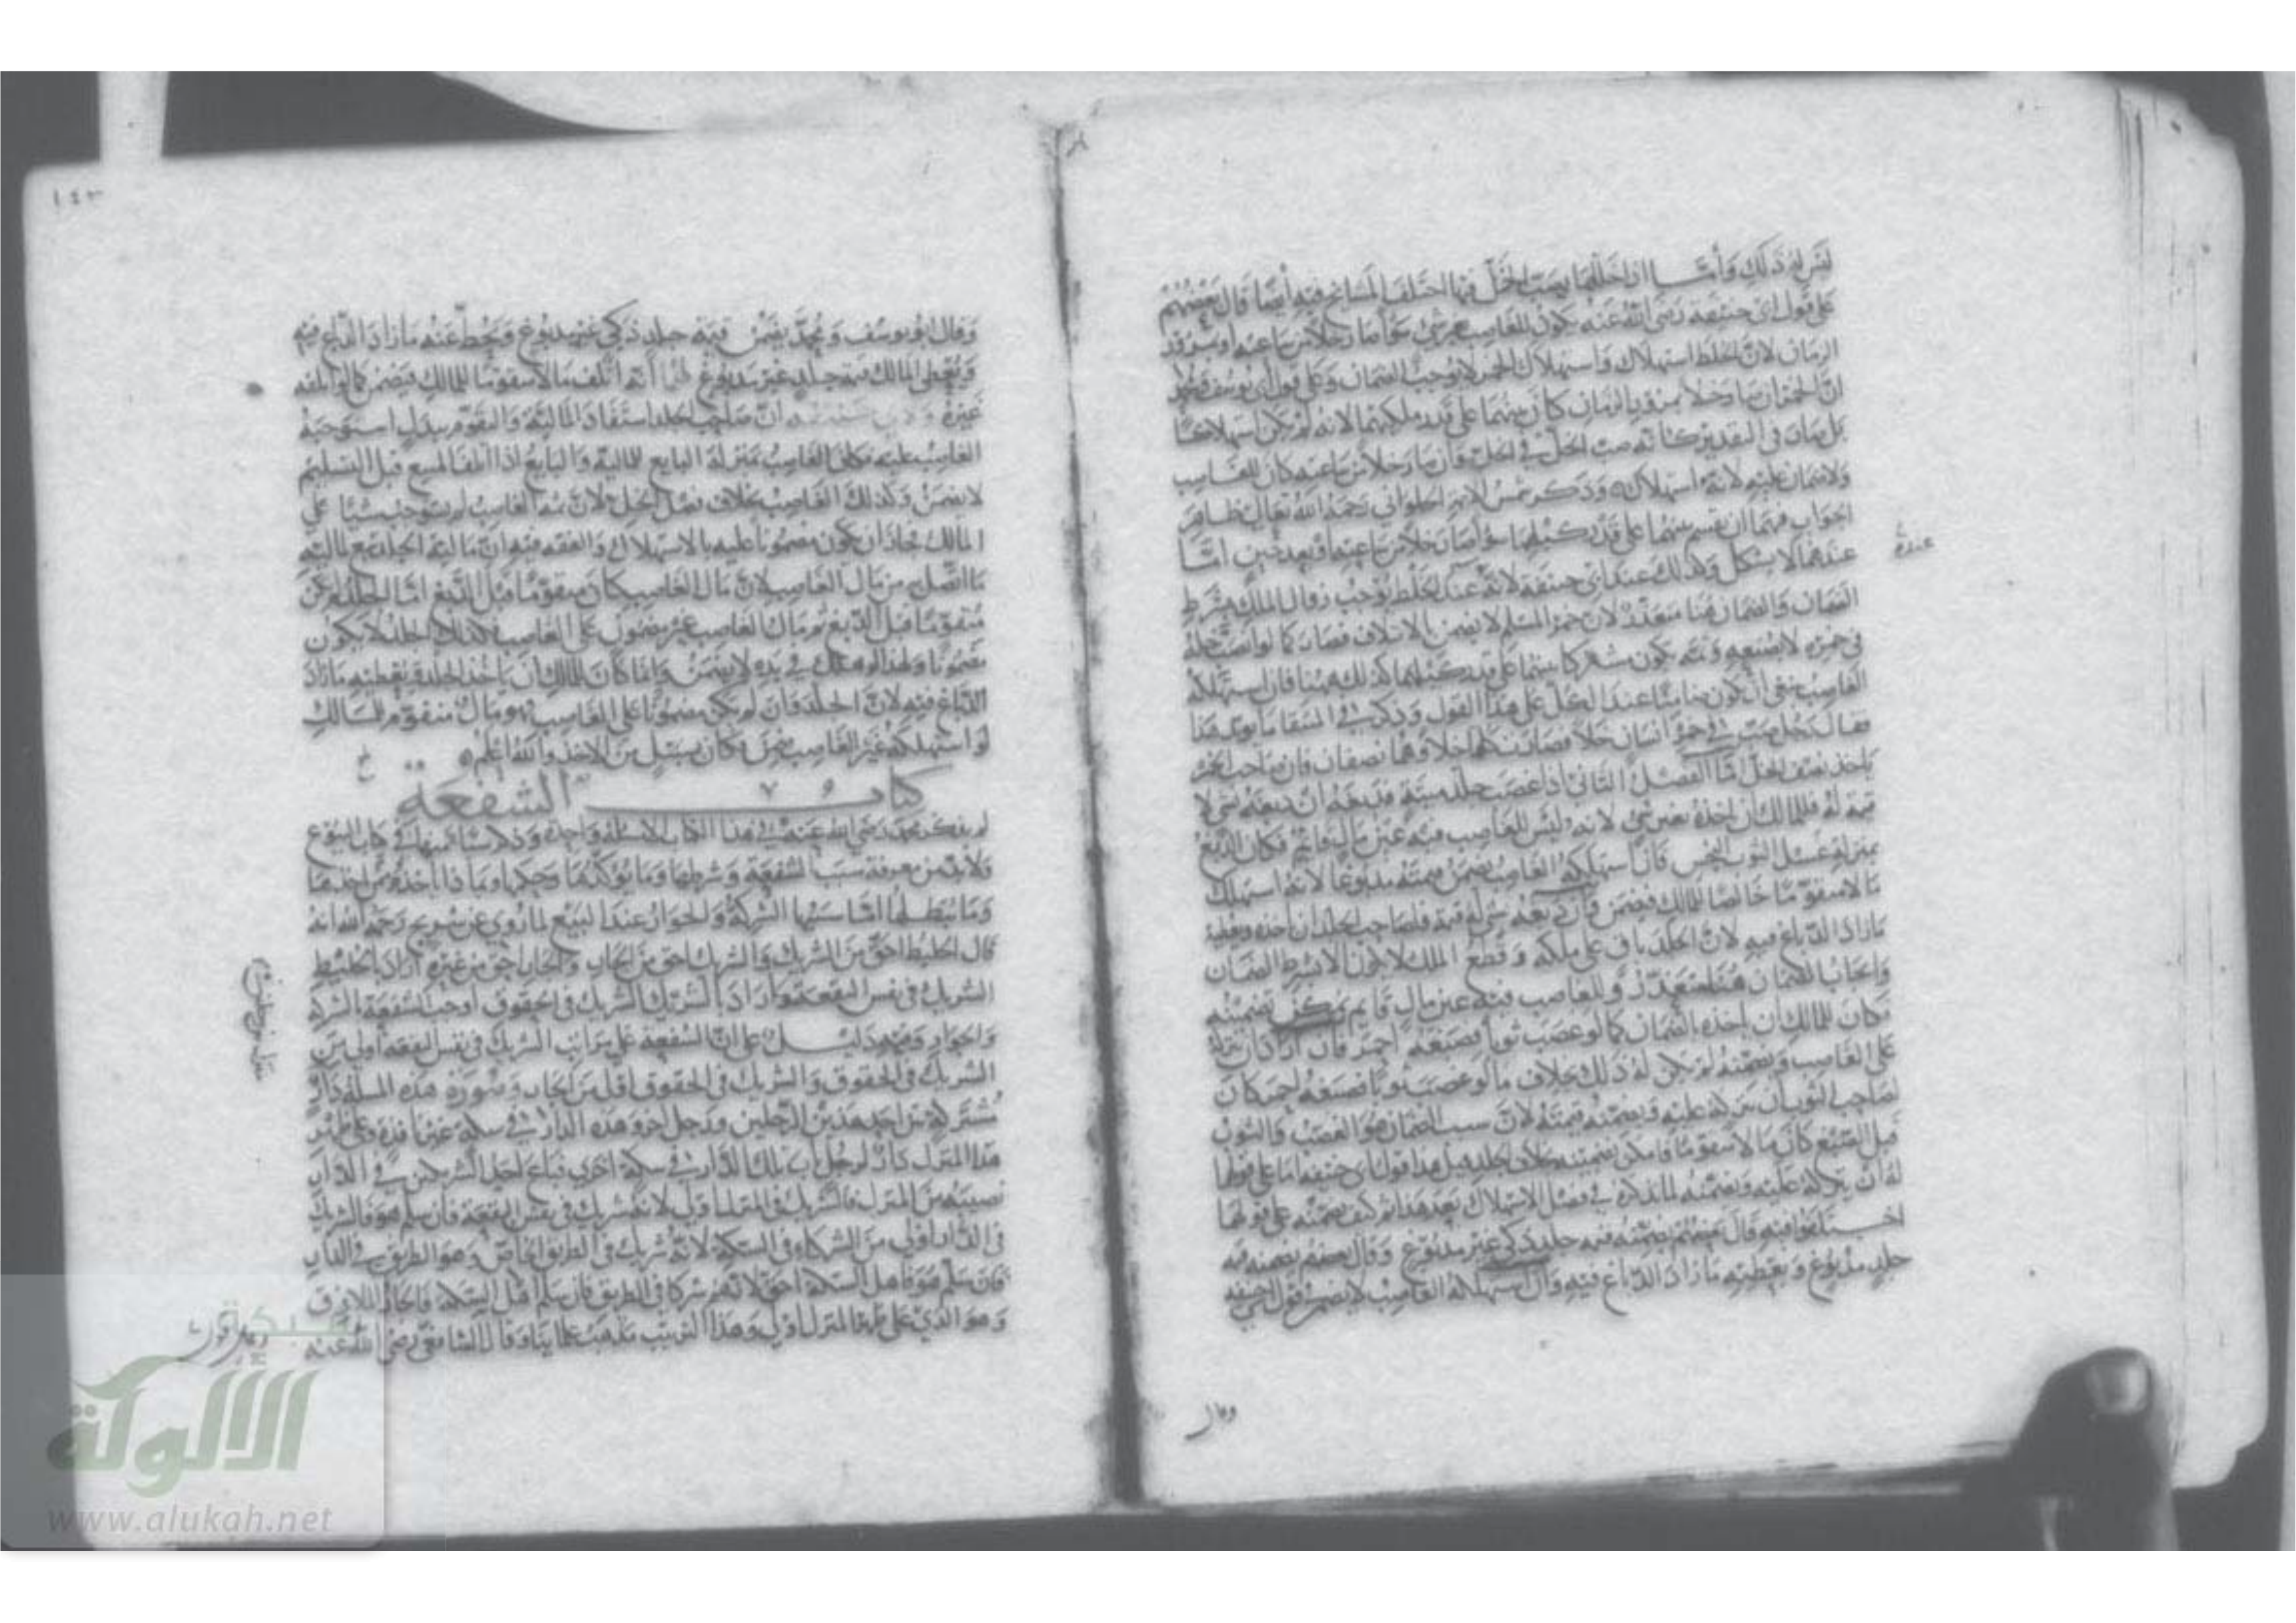 ليس له ذلك وأما اذا خللها بصب الخل فيها اختلف المشايخ فيه أيضا قال بعضهم
على قول ابي حنيفة رضي الله عنه يكون للغاصب بغير شيء سواء صار خلا من ساعته او بمرور
الزمان لان الخلط استهلاك واستهلاك الخمر لا يوجب الضمان وعلى قول ابي يوسف ومحمد
ان الخمر ان صار خلا بمرور الزمان كان بينهما على قدر ملكيهما لانه لم يكن استهلاكا
بل صار في التقدير كانه صب الخل في الخل وان صار خلا من ساعته كان للغاصب
ولا ضمان عليه لانه استهلاك وذكر شمس الايمة الحلواني رحمه الله تعالى ظاهر
الجواب فيهما ان يقسم بينهما على قدر كيلهما سواء صار خلا من ساعته او بعد حين اما
عندهما لا يشكل وكذلك عند ابي حنيفة لانه عنده الخلط يوجب زوال الملك بشرط
عنده
الضمان والضمان هنا متعذر لان خمر المسلم لا يضمن بالاتلاف فصار كما لو
في غيره لا بصنعه وثمه يكون مشتركا بينهما على قدر كيلهما كذلك ههنا فان استهلكه
الغاصب ينبغي ان يكون ضامنا عند الكل على هذا القول وذكر في المنتقا ما يؤيد هذا
فقال رجل صب في خمر انسان خلا فصارت كلها خلا وهما نصفان فان صاحب الخمر
ياخذ نصف الخل اما الفصل الثاني اذا غصب جلد ميتة فدبغه ان دبغه بشيء لا
قيمة له فللمالك ان ياخذه بغير شيء لانه ليس للغاصب فيه عين مال قائم فكان الدبغ
بمنزلة غسل الثوب النجس فان استهلكه الغاصب يضمن قيمته مدبوغا لانه استهلك
مالا متقوما خالصا للمالك فيضمن وان دبغه بشيء له قيمة فلصاحب الجلد ان ياخذه ويعطيه
ما زاد الدباغ فيه لان الجلد باق على ملكه وقطع الملك لا يكون الا بشرط الضمان
وايجاب الضمان هنا متعذر وللغاصب فيه عين مال قايم
فكان للمالك ان ياخذه بالضمان كما لو غصب ثوبا فصبغه احمر فان اراد ان يتركه
على الغاصب ويضمنه لم يكن له ذلك بخلاف ما لو غصب ثوبا فصبغه احمر كان
لصاحب الثوب ان يتركه عليه ويضمنه قيمته لان سبب الضمان هو الغصب والثوب
قبل الصبغ كان مالا متقوما فامكن تضمينه بخلاف الجلد قيل هذا قول ابي حنيفة اما على قولهما
له ان يتركه عليه ويضمنه لما نذكره في فصل الاستهلاك بعد هذا ثم كيف يضمنه على قولهما
اختلفوا فيه قال بعضهم يضمنه قيمة جلد ذكي غير مدبوغ وقال بعضهم يضمنه قيمة
جلد مدبوغ ويعطيه ما زاد الدباغ فيه وان استهلكه الغاصب لا يضمن في قول ابي حنيفة
وقال
١٤٣
وقال ابو يوسف ومحمد يضمن قيمة جلد ذكي غير مدبوغ ويحط عنه ما زاد الدباغ فيه
ويعطي المالك قيمة جلد غير مدبوغ لهما انه اتلف مالا متقوما للمالك فيضمن كما لو اتلفه
غيره ولابي حنيفة ان صاحب الجلد استفاد المالية والتقوم ببدل استوجبه
الغاصب عليه فكان الغاصب بمنزلة البايع للمالية والبايع اذا اتلف المبيع قبل التسليم
لا يضمن وكذلك الغاصب بخلاف فصل الخل لان ثمه الغاصب لم يستوجب شيئا على
المالك فجاز ان يكون مضمونا عليه بالاستهلاك والفقه فيه ان مالية الجلد تبع لمالية
ما اتصل به من مال الغاصب لان مال الغاصب كان متقوما قبل الدبغ اما الجلد لم يكن
متقوما قبل الدبغ ثم مال الغاصب غير مضمون على الغاصب فكذلك الجلد لا يكون
مضمونا ولهذا لو هلك في يده لا يضمن وانما كان للمالك ان ياخذ الجلد ويعطيه ما زاد
الدباغ فيه لان الجلد وان لم يكن مضمونا على الغاصب فهو مال متقوم للمالك
لو استهلكه غير الغاصب يضمن فكان بسبيل من الاخذ والله اعلم
كتاب الشفعة
لم يذكر محمد رضي الله عنه في هذا الكتاب الا مسئلة واحدة وذكر مسائلها في كتاب البيوع
ولا بد من معرفة سبب الشفعة وشرطها وما يؤكدها وحكمها وبماذا ياخذه من اخذها
وما يبطلها اما سببها الشركة والجوار عند البيع لما روي عن شريح رحمه الله انه
قال الخليط احق من الشريك والشريك احق من الجار والجار احق من غيره اراد بالخليط
الشريك في نفس البقعة واراد بالشريك الشريك في الحقوق اوجب الشفعة بالشركة
والجوار وفيه دليل على ان الشفعة على مراتب الشريك في نفس البقعة اولى من
الشريك في الحقوق والشريك في الحقوق اولى من الجار وصورة هذه المسئلة دار
مشتركة بين احد هذين الرجلين ورجل اخر وهذه الدار في سكة غير نافذة وعلى ظهر
هذا المنزل دار لرجل باب تلك الدار في سكة اخرى فباع احد الشريكين في الدار
نصيبه من المنزل فالشريك في المنزل اولى لانه شريك في نفس البقعة فان سلم هو فالشريك
في الدار اولى من الشركاء في السكة لانه شريك في الطريق الخاص وهو الطريق في الدار
فان سلم هو فاهل السكة احق لانهم شركا في الطريق فان سلم اهل السكة فالجار الملازق
وهو الذي على ظهر المنزل اولى وهذا الترتيب مذهب علمائنا وقال الشافعي رضي الله عنه
شبكة
الألوكة
www.alukah.net